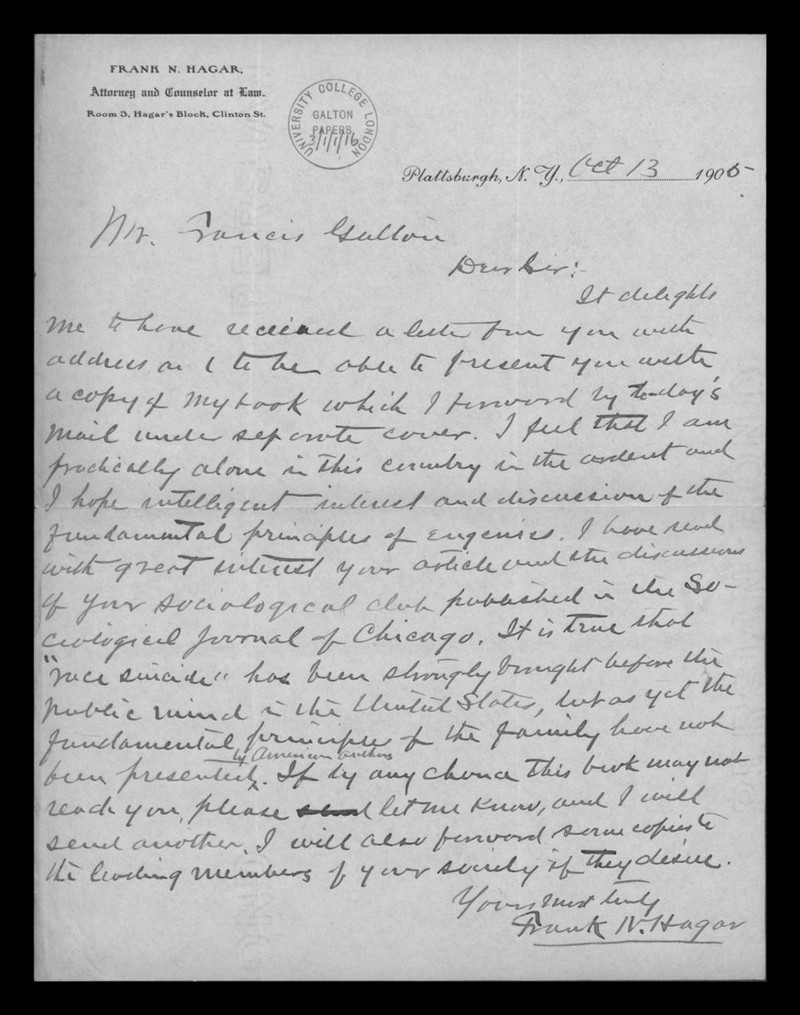 FRANK N. HAGAR,
Attorney and Counselor at Law.
Room 3, Hagar's Block, Clinton St.
UNIVERSITY COLLEGE LONDON
GALTON
PAPERS
3/1/1/16
Plattsburgh, N. Y., Oct 13 1905.
Mr. Francis Galton
Dear Sir:-
It delights
me to have received a letter from you with
address and to be able to present you with
a copy of my book which I forward by to-day's
mail under separate cover. I feel that I am
practically alone in this country in the ardent and
I hope intelligent interest and discussion of the
fundamental principles of eugenics. I have read
with great interest your article and the discussions
of your sociological club published in the So-
ciological Journal of Chicago. It is true that
"race suicide" has been strongly brought before the
public mind in the United States, but as yet the
fundamental principles of the family have not
by American authors
been presented. If by any chance this book may not
reach you, please send let me know, and I will
send another. I will also forward some copies to
the leading members of your society if they desire.
Yours most truly
Frank N. Hagar